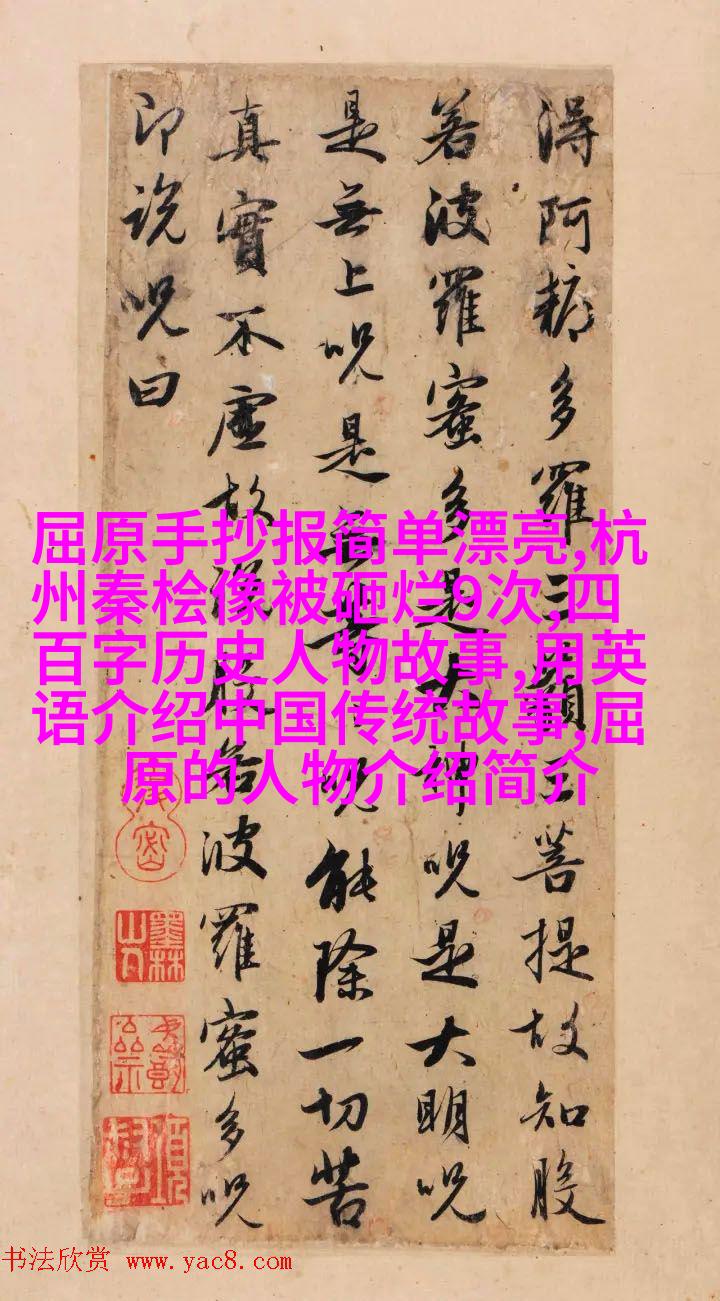 得阿耨多羅三藐三菩提故知般
若波羅蜜多是大神呪是大明呪
是無上呪是無等等呪能除一切苦
真實不虛故說般若波羅蜜多呪
即說呪曰
屈原手抄报简单漂亮,杭
州秦桧像被砸烂9次,四
百字历史人物故事,用英
语介绍中国传统故事,屈
原的人物介绍简介
墨林山人
书法欣赏 www.yac8.com